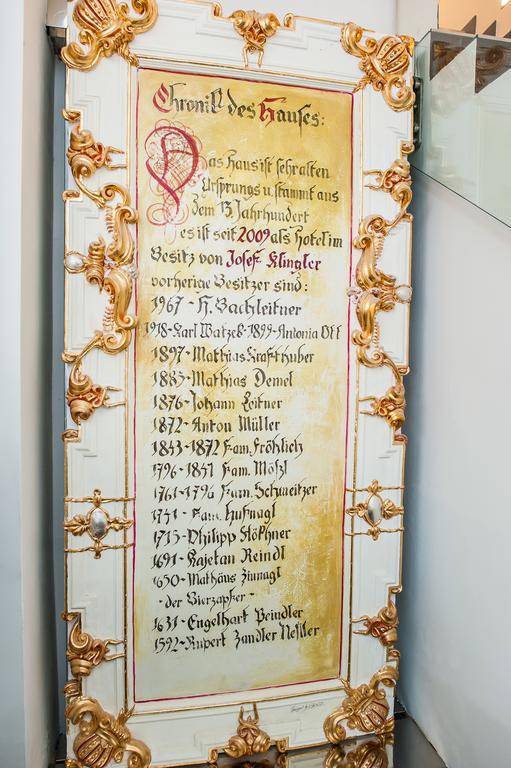 Chronik des Hauses:
Das Haus ist sehr alten
Ursprungs u. stammt aus
dem 13 Jahrhundert
es ist seit 2009 als Hotel im
Besitz von Josef Klingler
vorherige Besitzer sind:
1967 - H. Bachleitner
1918 - Karl Watzek - 1899 - Antonia Ott
1897 - Mathias Krafthuber
1885 - Mathias Demel
1876 - Johann Leitner
1872 - Anton Müller
1843 - 1872 Fam. Fröhlich
1796 - 1841 Fam. Mößl
1761 - 1796 Fam. Schweitzer
1741 - Fam. Hufnagl
1715 - Philipp Stökhner
1691 - Kajetan Reindl
1650 - Mathäus Zinnagl
- der Bierzapfer -
1631 - Engelhart Peindler
1592 - Rupert Zandler